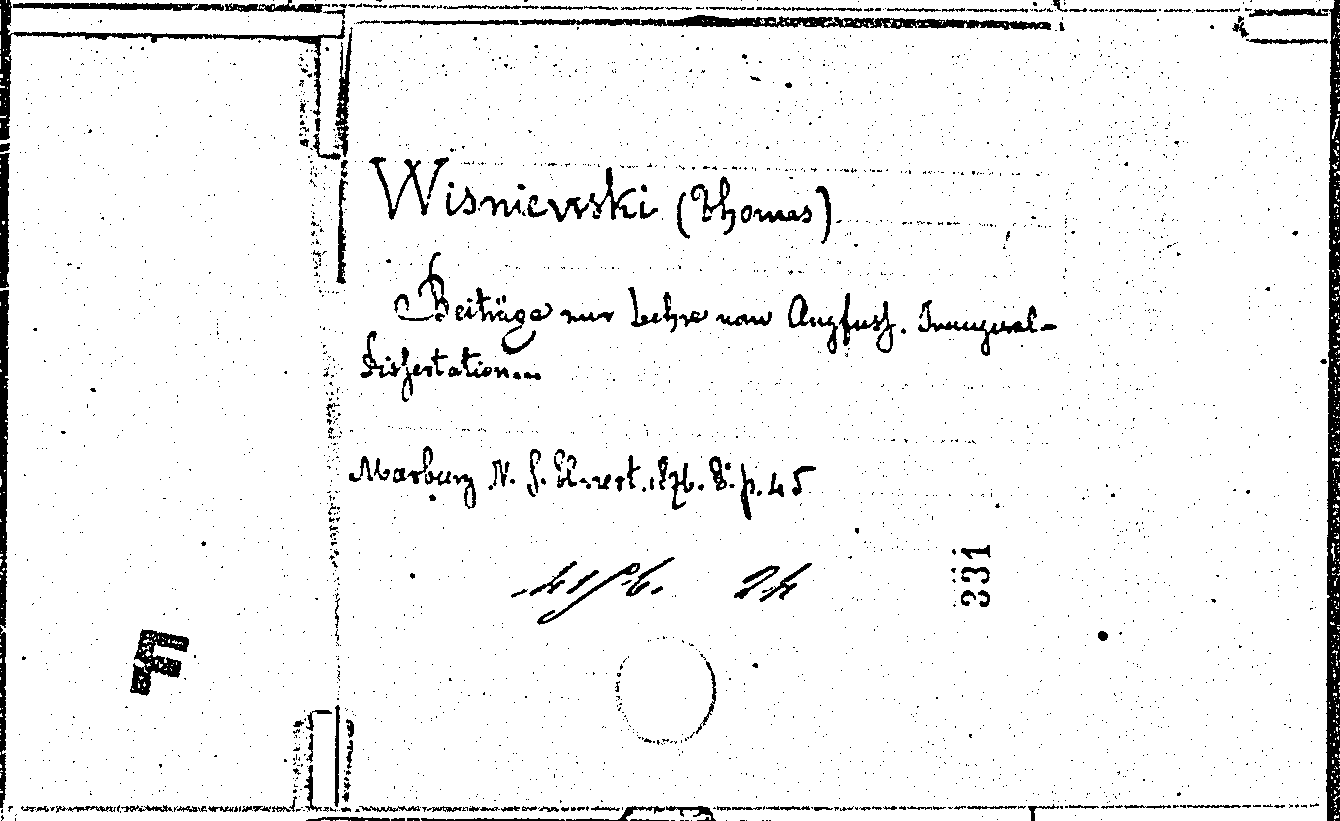 Wisniewski (Thomas)
Beiträge zur Lehre vom Angfuss. Inaugural-
Dissertation...
Marburg N. G. Elwert. 1876. 8° p. 45
24
331
F